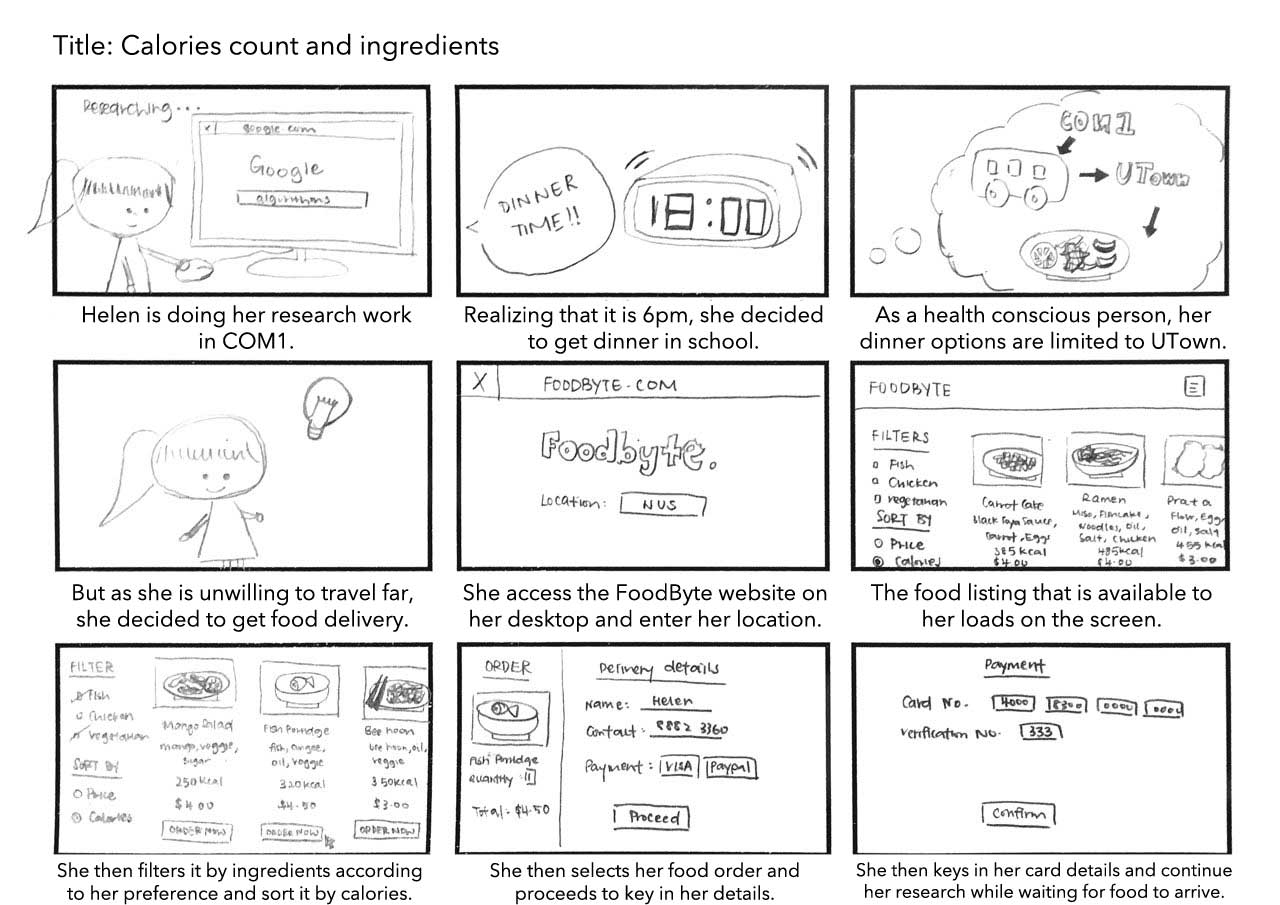 Title: Calories count and ingredients
Researching...
X google.com
Google
algorithms
Helen is doing her research work
in COM1.
DINNER
TIME!!
18:00
Realizing that it is 6pm, she decided
to get dinner in school.
COM1
UTown
As a health conscious person, her
dinner options are limited to UTown.
But as she is unwilling to travel far,
she decided to get food delivery.
X FOODBYTE.COM
Foodbyte.
Location: NUS
She access the FoodByte website on
her desktop and enter her location.
FOODBYTE
FILTERS
Fish
Chicken
vegetarian
SORT BY
Price
Calories
Carrot Cake
Black Soya Sauce,
Carrot, Eggs
385kcal
$4.00
Ramen
Miso, Fishcake,
Noodles, Oil,
Salt, Chicken
485kcal
$4.00
Prata
Flour, Egg
Oil, Salt
455 kcal
$3.00
The food listing that is available to
her loads on the screen.
FILTER
Fish
Chicken
Vegetarian
SORT BY
Price
Calories
Mango Salad
mango, veggie,
sugar
250kcal
$4.00
ORDER NOW
Fish Porridge
fish, ginger,
oil, veggie
320kcal
$4.50
ORDER NOW
Bee hoon
bee hoon, oil,
veggie
350kcal
$3.00
ORDER NOW
She then filters it by ingredients according
to her preference and sort it by calories.
ORDER
Fish Porridge
quantity: 1
Total: $4.50
Delivery details
Name: Helen
Contact: 8882 3360
Payment: VISA Paypal
Proceed
She then selects her food order and
proceeds to key in her details.
Payment
Card No. 4000 8300 0000 0004
Verification No. 333
Confirm
She then keys in her card details and continue
her research while waiting for food to arrive.